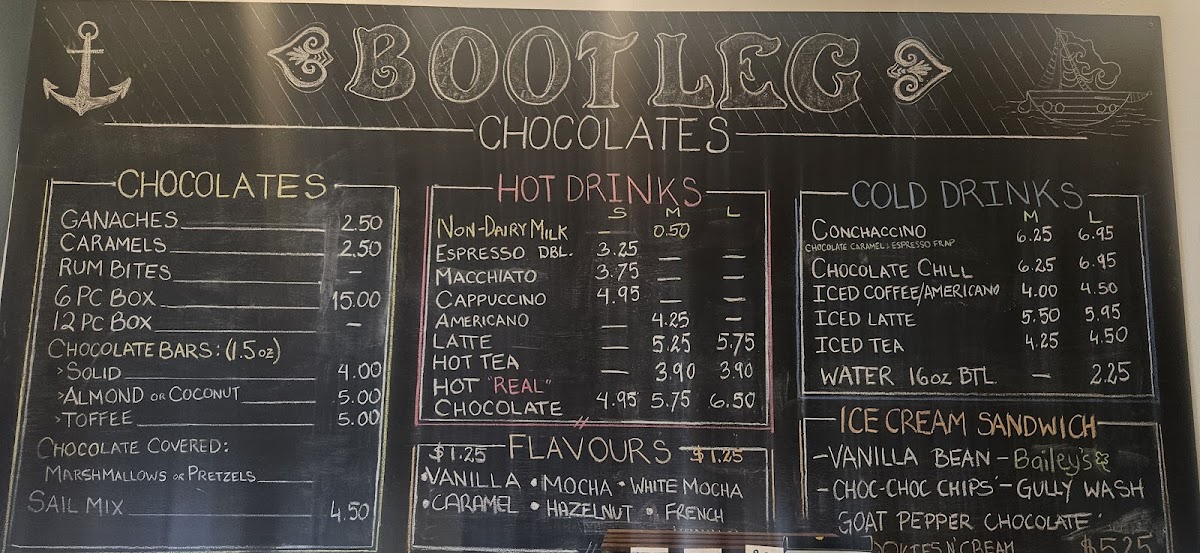 BOOTLEG
CHOCOLATES
CHOCOLATES
GANACHES 2.50
CARAMELS 2.50
RUM BITES –
6 PC BOX 15.00
12 PC BOX –
CHOCOLATE BARS: (1.5 oz)
>SOLID 4.00
>ALMOND OR COCONUT 5.00
>TOFFEE 5.00
CHOCOLATE COVERED:
MARSHMALLOWS OR PRETZELS
SAIL MIX 4.50
HOT DRINKS
S M L
NON-DAIRY MILK – 0.50
ESPRESSO DBL. 3.25 – –
MACCHIATO 3.75 – –
CAPPUCCINO 4.95 – –
AMERICANO – 4.25 –
LATTE – 5.25 5.75
HOT TEA – 3.90 3.90
HOT "REAL"
CHOCOLATE 4.95 5.75 6.50
$1.25 FLAVOURS $1.25
•VANILLA •MOCHA •WHITE MOCHA
•CARAMEL •HAZELNUT •FRENCH
COLD DRINKS
M L
CONCHACCINO 6.25 6.95
CHOCOLATE CARAMEL & ESPRESSO FRAP
CHOCOLATE CHILL 6.25 6.95
ICED COFFEE/AMERICANO 4.00 4.50
ICED LATTE 5.50 5.95
ICED TEA 4.25 4.50
WATER 16oz BTL. – 2.25
ICE CREAM SANDWICH
-VANILLA BEAN -Bailey's
-CHOC-CHOC CHIPS -GULLY WASH
GOAT PEPPER CHOCOLATE
COOKIES N' CREAM $5.25